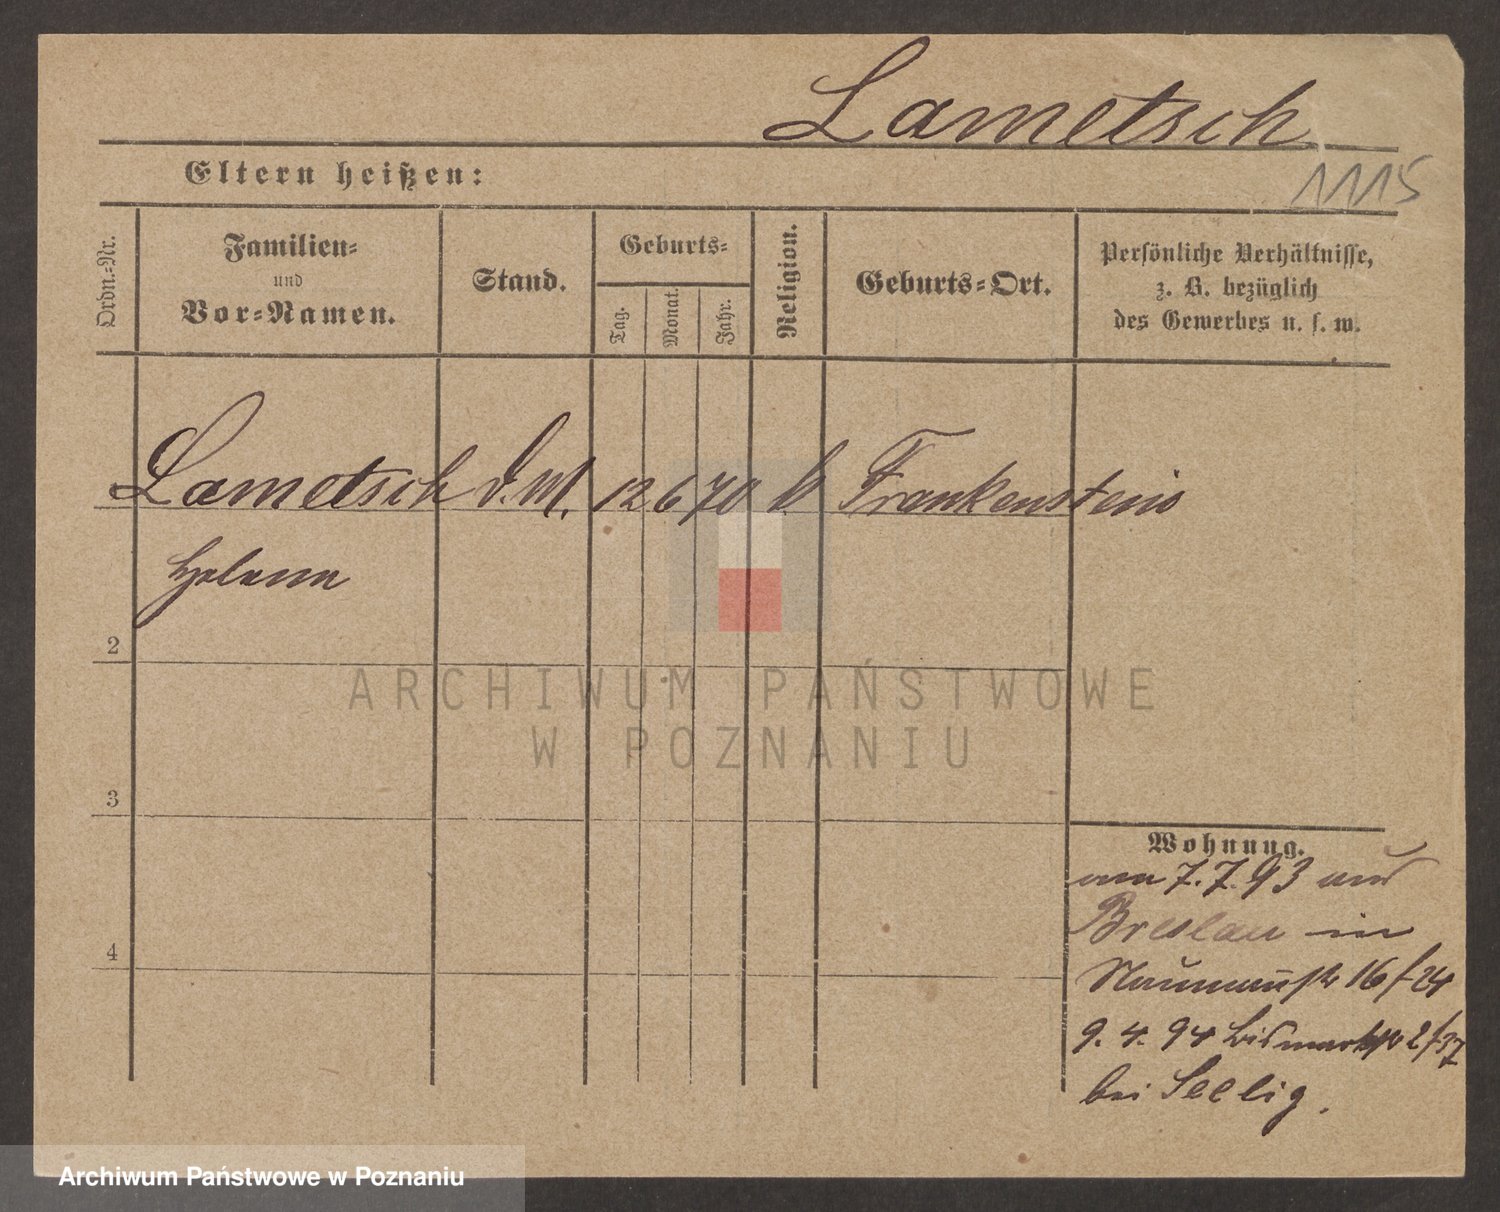 Lametsch
1115
Eltern heißen:
Ordn.-Nr.
Familien-
und
Vor-Namen.
Stand.
Geburts-
Tag.
Monat.
Jahr.
Religion.
Geburts-Ort.
Persönliche Verhältnisse,
z. B. bezüglich
des Gewerbes u. s. w.
Lametsch 12 6 70 k Frankenstein
Helene
2
3
4
Wohnung.
am 7.7.93 aus
Breslau in
Naumannstr 16/24
9. 4. 94 Bismarckstr 2/37
bei Seelig.
ARCHIWUM PAŃSTWOWE
W POZNANIU
Archiwum Państwowe w Poznaniu